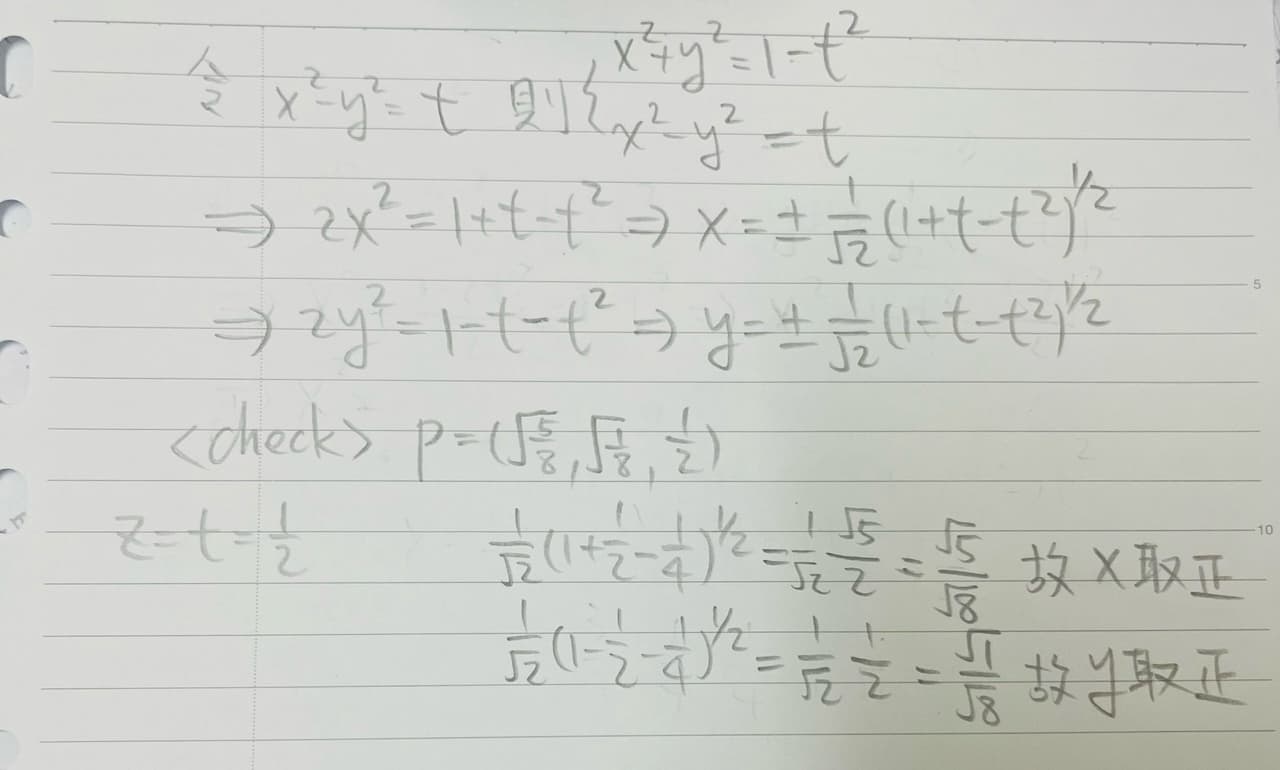 令 x²-y²=t 則{x²+y²=1-t²
x²-y²=t
⇒ 2x²=1+t-t² ⇒ x=±1/√2(1+t-t²)^1/2
⇒ 2y²=1-t-t² ⇒ y=±1/√2(1-t-t²)^1/2
5
<check> p=(√5/8, √1/8, 1/2)
z=t=1/2 1/√2(1+1/2-1/4)^1/2=1/√2 √5/2=√5/√8 故x取正
10
1/√2(1-1/2-1/4)^1/2=1/√2 1/2=√1/√8 故y取正